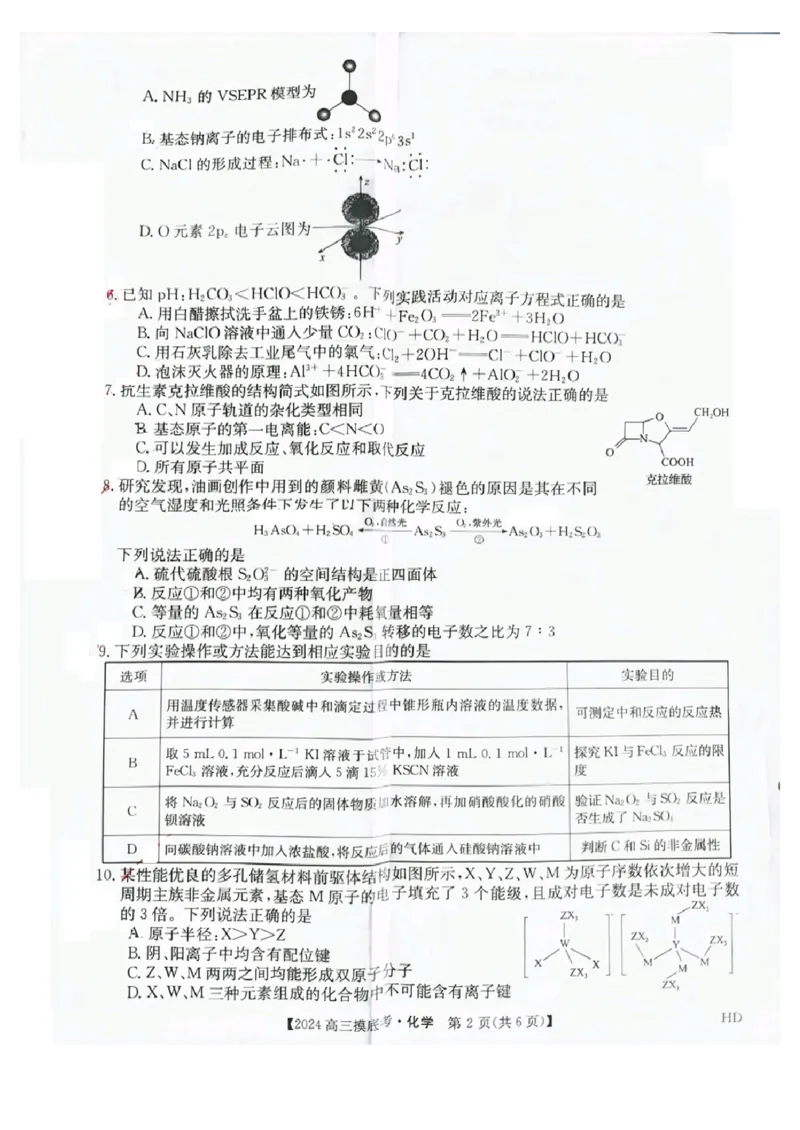 A. NH₃ 的 VSEPR 模型为
B. 基态钠离子的电子排布式:1s²2s²2p⁶3s¹
C. NaCl 的形成过程:Na·+·Cl:→Na:Cl:
z
D. O 元素 2p_z 电子云图为
x y
6. 已知 pH:H₂CO₃<HClO<HCO₃⁻。下列实践活动对应离子方程式正确的是
A. 用白醋擦拭洗手盆上的铁锈:6H⁺+Fe₂O₃══2Fe³⁺+3H₂O
B. 向 NaClO 溶液中通入少量 CO₂:ClO⁻+CO₂+H₂O══HClO+HCO₃⁻
C. 用石灰乳除去工业尾气中的氯气:Cl₂+2OH⁻══Cl⁻+ClO⁻+H₂O
D. 泡沫灭火器的原理:Al³⁺+4HCO₃⁻══4CO₂↑+AlO₂⁻+2H₂O
7. 抗生素克拉维酸的结构简式如图所示,下列关于克拉维酸的说法正确的是
A. C、N 原子轨道的杂化类型相同
B. 基态原子的第一电离能:C<N<O
C. 可以发生加成反应、氧化反应和取代反应
D. 所有原子共平面
CH₂OH
O
N
O
COOH
克拉维酸
8. 研究发现,油画创作中用到的颜料雌黄(As₂S₃)褪色的原因是其在不同
的空气湿度和光照条件下发生了以下两种化学反应:
H₃AsO₄+H₂SO₄ ←O₂,自然光 ①— As₂S₃ —O₂,紫外光 ②→ As₂O₃+H₂S₂O₃
下列说法正确的是
A. 硫代硫酸根 S₂O₃²⁻ 的空间结构是正四面体
B. 反应①和②中均有两种氧化产物
C. 等量的 As₂S₃ 在反应①和②中耗氧量相等
D. 反应①和②中,氧化等量的 As₂S₃ 转移的电子数之比为 7∶3
9. 下列实验操作或方法能达到相应实验目的的是
选项 实验操作或方法 实验目的
A 用温度传感器采集酸碱中和滴定过程中锥形瓶内溶液的温度数据,并进行计算 可测定中和反应的反应热
B 取 5 mL 0.1 mol·L⁻¹ KI 溶液于试管中,加入 1 mL 0.1 mol·L⁻¹ FeCl₃ 溶液,充分反应后滴入 5 滴 15% KSCN 溶液 探究 KI 与 FeCl₃ 反应的限度
C 将 Na₂O₂ 与 SO₂ 反应后的固体物质加水溶解,再加硝酸酸化的硝酸钡溶液 验证 Na₂O₂ 与 SO₂ 反应是否生成了 Na₂SO₄
D 向碳酸钠溶液中加入浓盐酸,将反应后的气体通入硅酸钠溶液中 判断 C 和 Si 的非金属性
10. 某性能优良的多孔储氢材料前驱体结构如图所示,X、Y、Z、W、M 为原子序数依次增大的短
周期主族非金属元素,基态 M 原子的电子填充了 3 个能级,且成对电子数是未成对电子数
的 3 倍。下列说法正确的是
A. 原子半径:X>Y>Z
B. 阴、阳离子中均含有配位键
C. Z、W、M 两两之间均能形成双原子分子
D. X、W、M 三种元素组成的化合物中不可能含有离子键
ZX₃
W
X X
ZX₃
ZX₃
M
ZX₃ ZX₃
Y
M M
M
ZX₃
【2024 高三摸底考·化学 第 2 页(共 6 页)】
HD